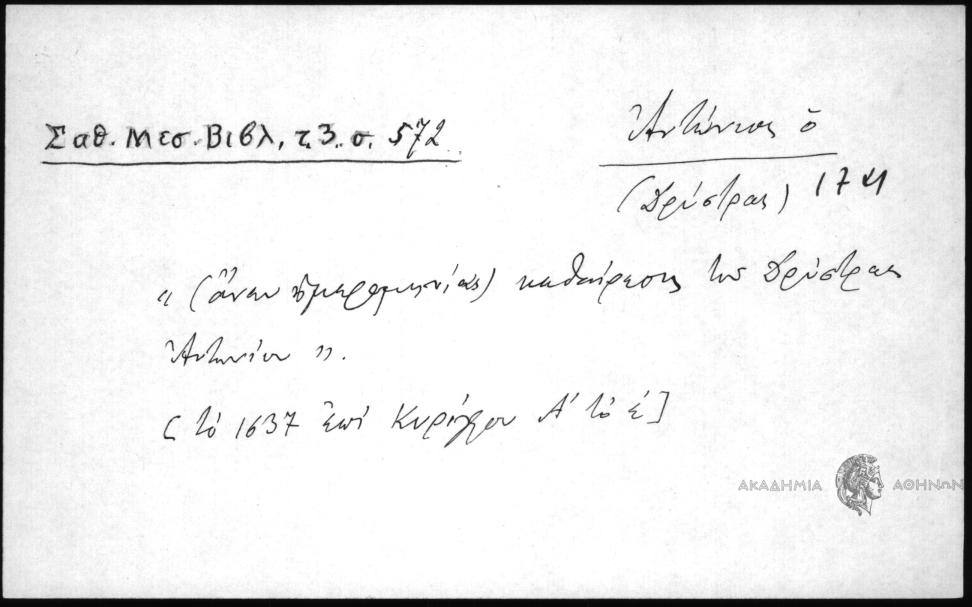 Σαθ. Μεσ. Βιβλ, τ. 3. σ. 572
Ἀντώνιος ὁ
(Δρύστρας) 17
« (ἄνευ ἡμερομηνίας) καθαίρεσις τοῦ Δρύστρας
Ἀντωνίου ».
[ τὸ 1637 ἐπὶ Κυρίλλου Α' τὸ ε' ]
ΑΚΑΔΗΜΙΑ ΑΘΗΝΩΝ